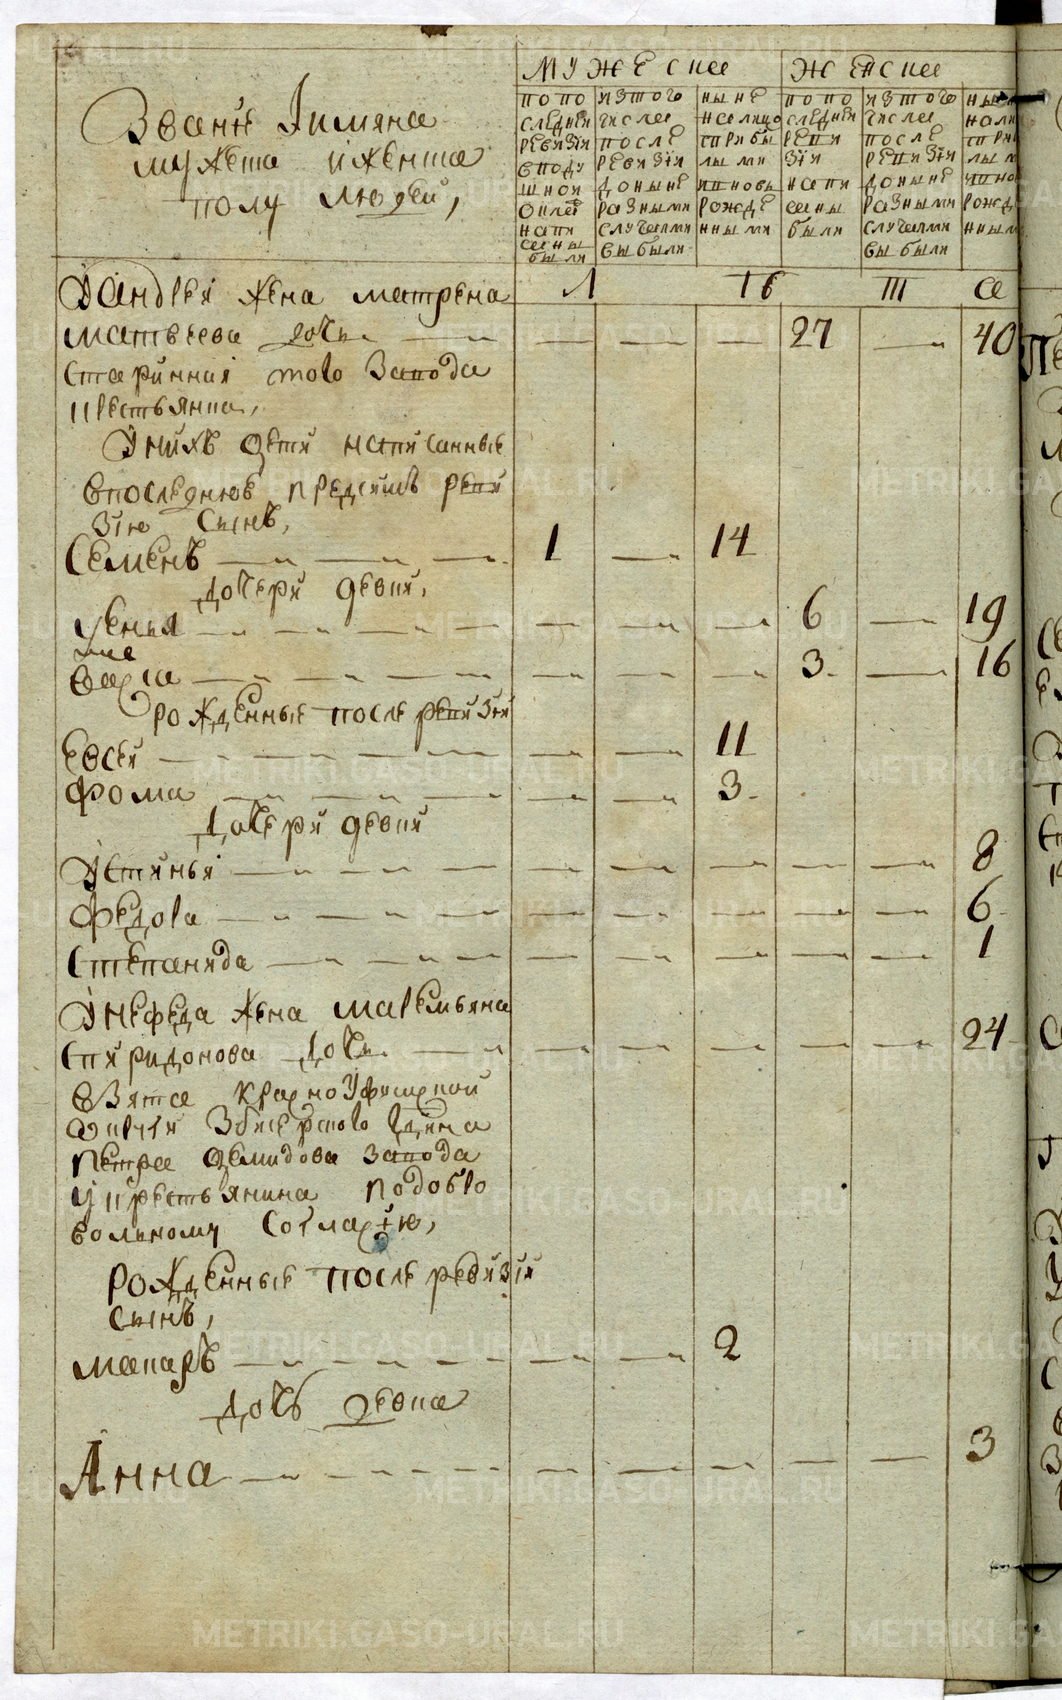 Звание Iимяна
мужеска иженска
полу людей,
МУЖЕСКЕ
ЖЕНСКЕ
попо
следней
ревизiи
вподу
шной
окляд
напи
саны
были
изтого
числа
после
ревизiи
доныне
разными
случаями
выбыли
ныне
налицо
сприбы
лыми
ивновь
рожде
нными
попо
следней
реви
зiи
напи
саны
были
изтого
числа
после
ревизiи
доныне
разными
случаями
выбыли
налич
сприб
лым
рожд
нным
УАндрея жена матрена
матвеева дочь 27 40
старинная того завода
крестьянка,
Униχъ дети написанные
впоследнюю предсимъ реви
зiю сынъ,
Семенъ 1 14
дочери девки,
Ксенья 6 19
3 16
рожденные после ревизiи
Евсей 11
Фома 3
дочери девки
Устинья 8
Федора 6
Степанида 1
Унефеда жена макемьяна
спиридонова дочь 24
взята красноуфимской
округи
петра демидова завода
укрестьянина подобро
вольному согласiю,
рожденные после ревизiи
сынъ,
макаръ 2
дочь девка
Анна 3
METRIKI.GASO-URAL.RU